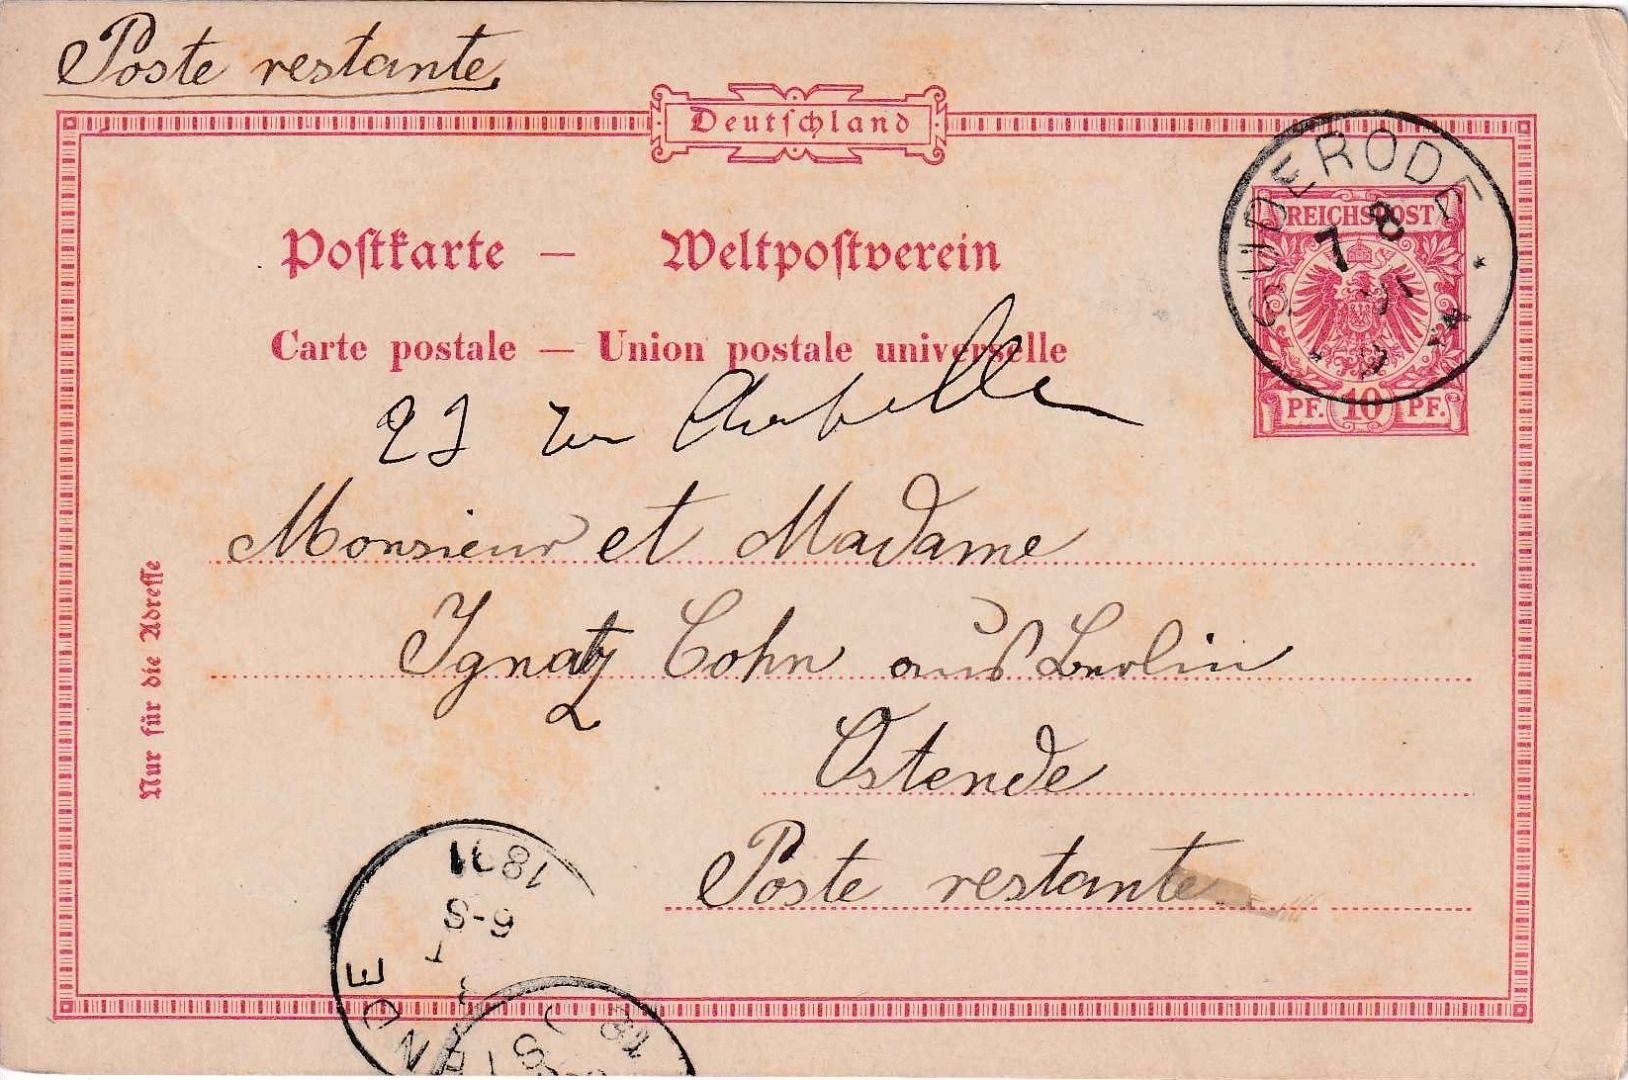 Poste restante
Deutschland
Postkarte — Weltpostverein
Carte postale — Union postale universelle
SUDERODE
7 8
REICHSPOST
PF. 10 PF.
23 rue Chapelle
Monsieur et Madame
Ignatz Cohn aus Berlin
Ostende
Poste restante
Nur für die Adresse
1891
6-S
NDE
18